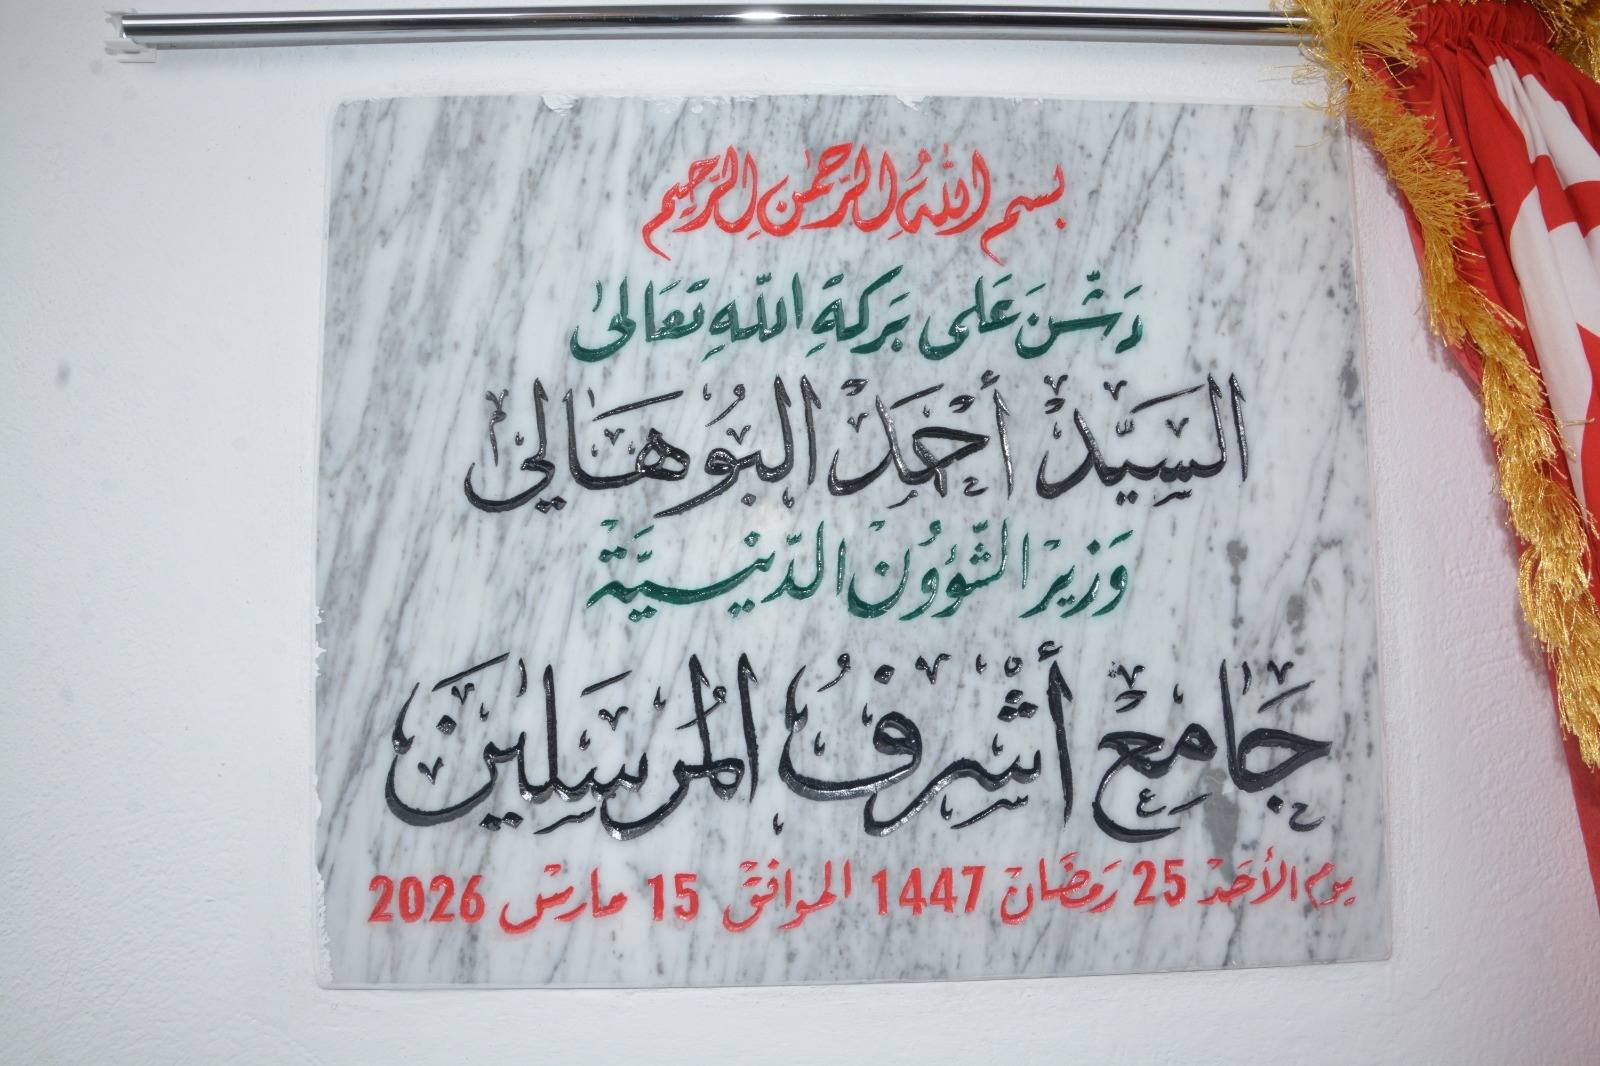 بسم الله الرحمن الرحيم
دَشّنَ عَلى بَركةِ اللّهِ تعَالىٰ
السَيّد أحْمَد البُوهَالي
وَزيرْ الشّؤُونْ الدّينيَّة
جَامع أشْرفُ المُرسَلينَ
يوم الأحَدْ 25 رَمضَانْ 1447 الموافقْ 15 مارسْ 2026